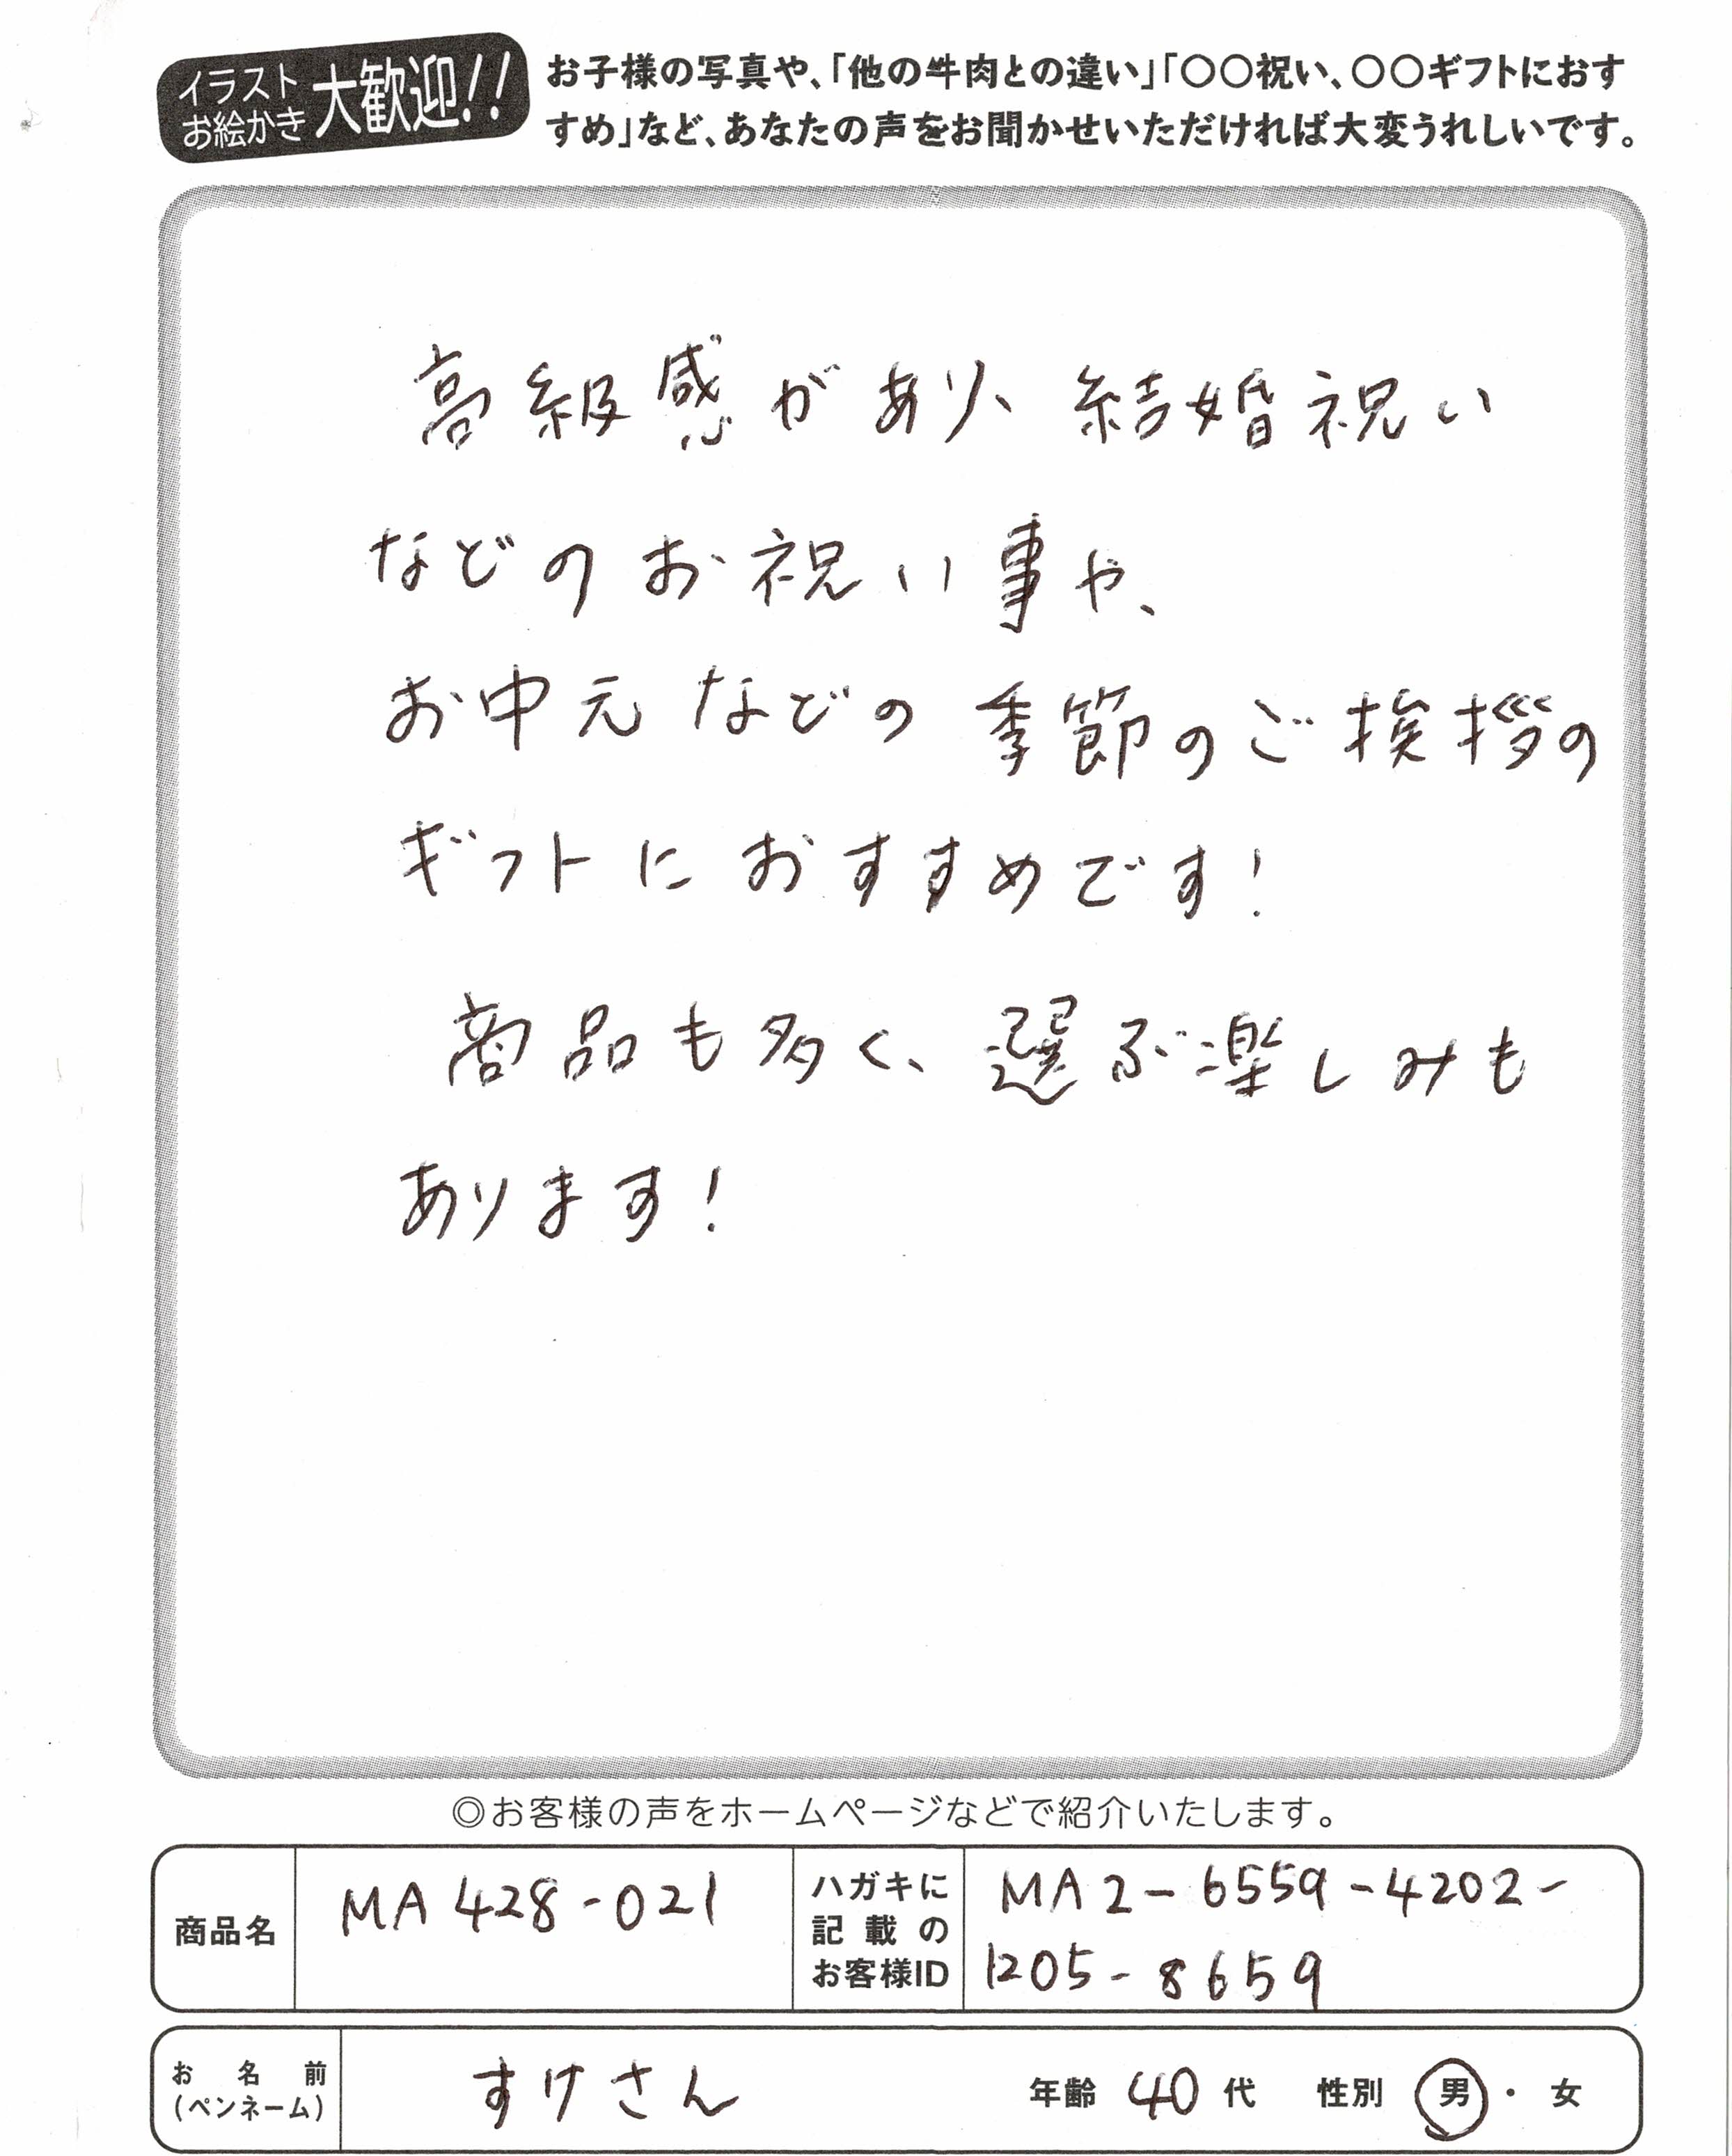 イラスト
お絵かき
大歓迎!!
お子様の写真や、「他の牛肉との違い」「〇〇祝い、〇〇ギフトにおす
すめ」など、あなたの声をお聞かせいただければ大変うれしいです。
高級感があり、結婚祝い
などのお祝い事や、
お中元などの季節のご挨拶の
ギフトにおすすめです!
商品も多く、選ぶ楽しみも
あります!
◎お客様の声をホームページなどで紹介いたします。
商品名
MA428-021
ハガキに
記載の
お客様ID
MA2-6559-4202-
1205-8659
お名前
(ペンネーム)
すけさん
年齢 40代 性別 男・女